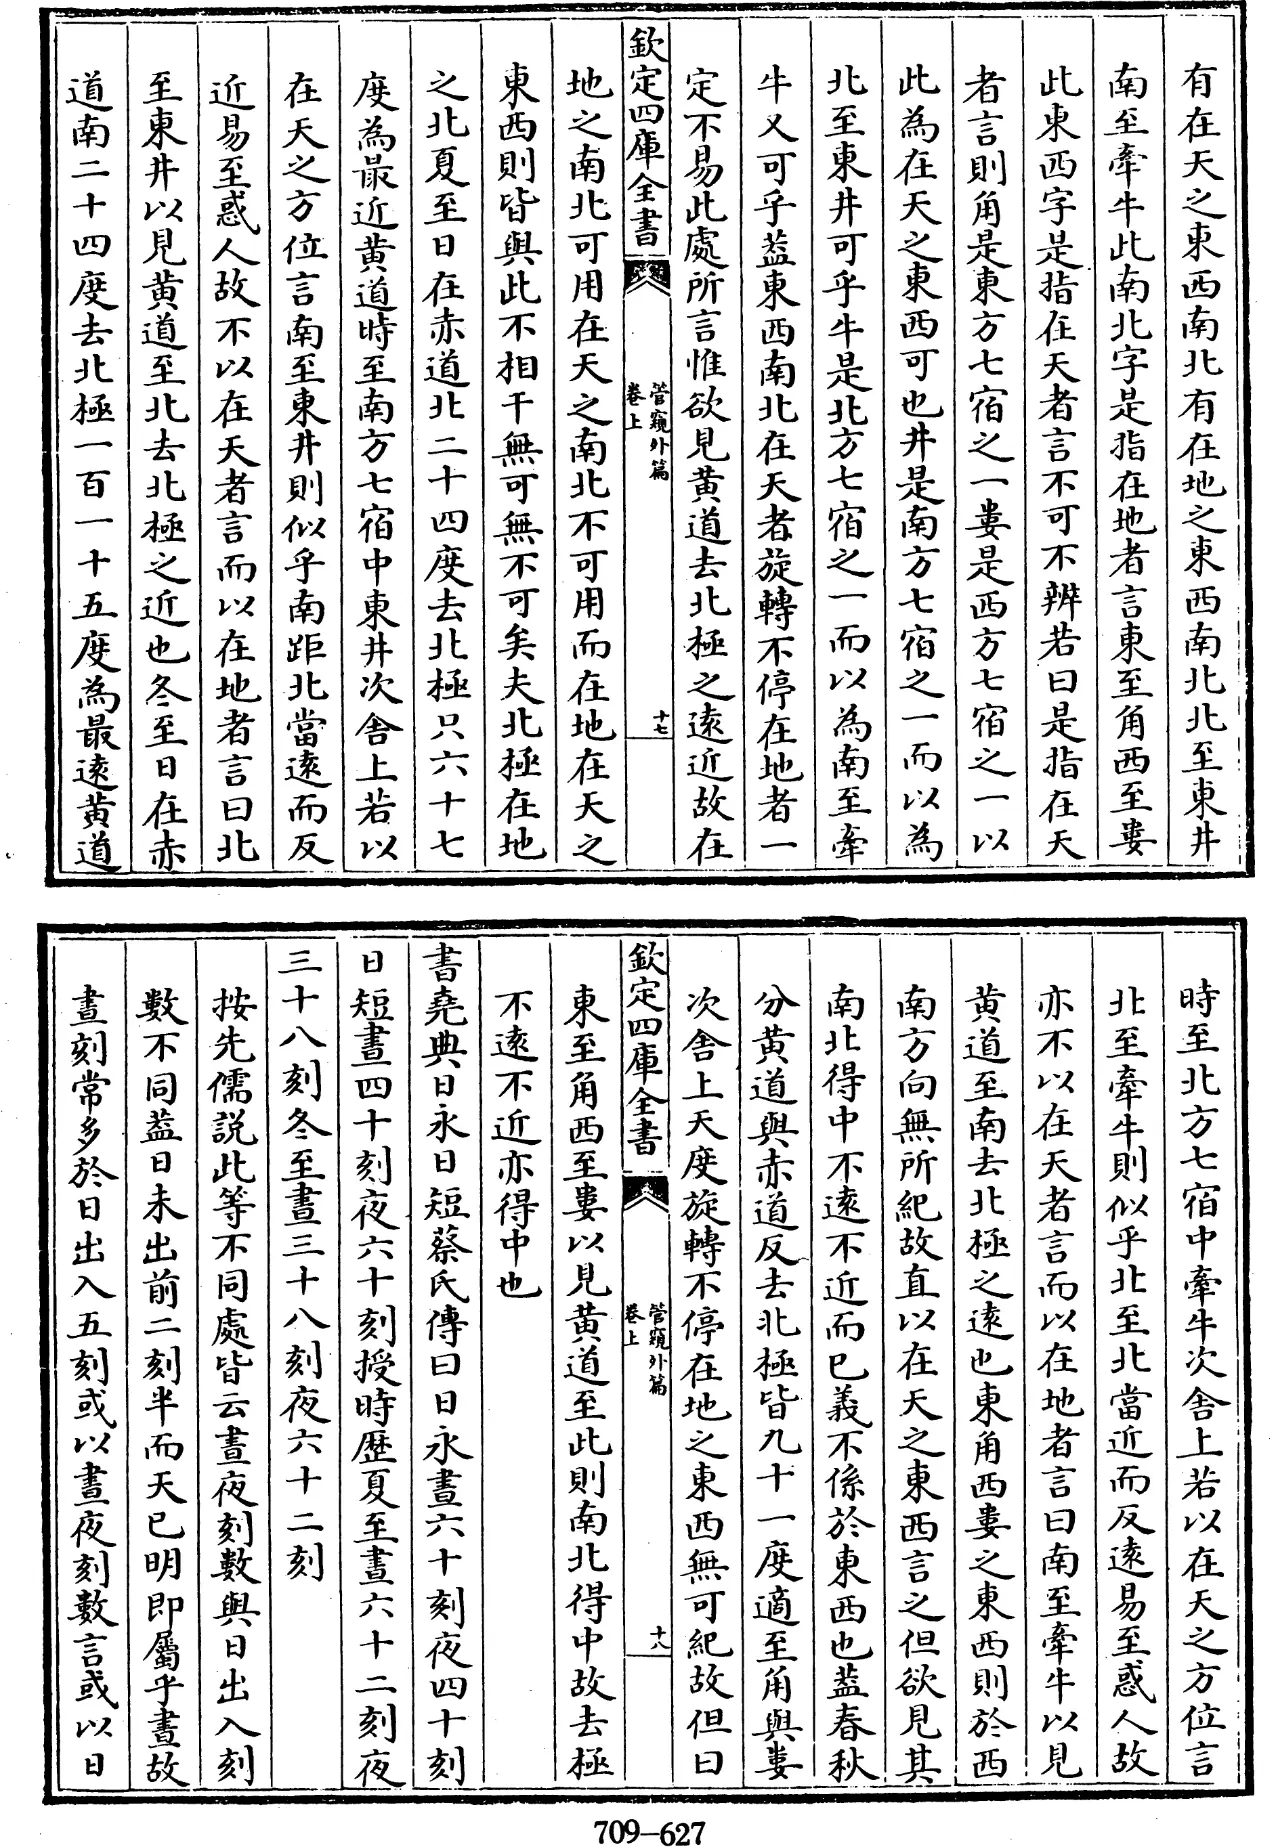 有在天之東西南北有在地之東西南北北至東井
南至牽牛此南北字是指在地者言東至角西至婁
此東西字是指在天者言不可不辨若曰是指在天
者言則角是東方七宿之一婁是西方七宿之一以
此為在天之東西可也井是南方七宿之一而以為
北至東井可乎牛是北方七宿之一而以為南至牽
牛又可乎蓋東西南北在天者旋轉不停在地者一
定不易此處所言惟欲見黄道去北極之遠近故在
欽定四庫全書
管窺外篇
卷上
十七
地之南北可用在天之南北不可用而在地在天之
東西則皆與此不相干無可無不可矣夫北極在地
之北夏至日在赤道北二十四度去北極只六十七
度為最近黄道時至南方七宿中東井次舍上若以
在天之方位言南至東井則似乎南距北當遠而反
近易至惑人故不以在天者言而以在地者言曰北
至東井以見黄道至北去北極之近也冬至日在赤
道南二十四度去北極一百一十五度為最遠黄道
時至北方七宿中牽牛次舍上若以在天之方位言
北至牽牛則似乎北至北當近而反遠易至惑人故
亦不以在天者言而以在地者言曰南至牽牛以見
黄道至南去北極之遠也東角西婁之東西則於西
南方向無所紀故直以在天之東西言之但欲見其
南北得中不遠不近而已義不係於東西也蓋春秋
分黄道與赤道反去北極皆九十一度適至角與婁
次舍上天度旋轉不停在地之東西無可紀故但曰
欽定四庫全書
管窺外篇
卷上
十八
東至角西至婁以見黄道至此則南北得中故去極
不遠不近亦得中也
書堯典日永日短蔡氏傳曰日永晝六十刻夜四十刻
日短晝四十刻夜六十刻授時歷夏至晝六十二刻夜
三十八刻冬至晝三十八刻夜六十二刻
按先儒説此等不同處皆云晝夜刻數與日出入刻
數不同蓋日未出前二刻半而天已明即屬乎晝故
晝刻常多於日出入五刻或以晝夜刻數言或以日
709—627